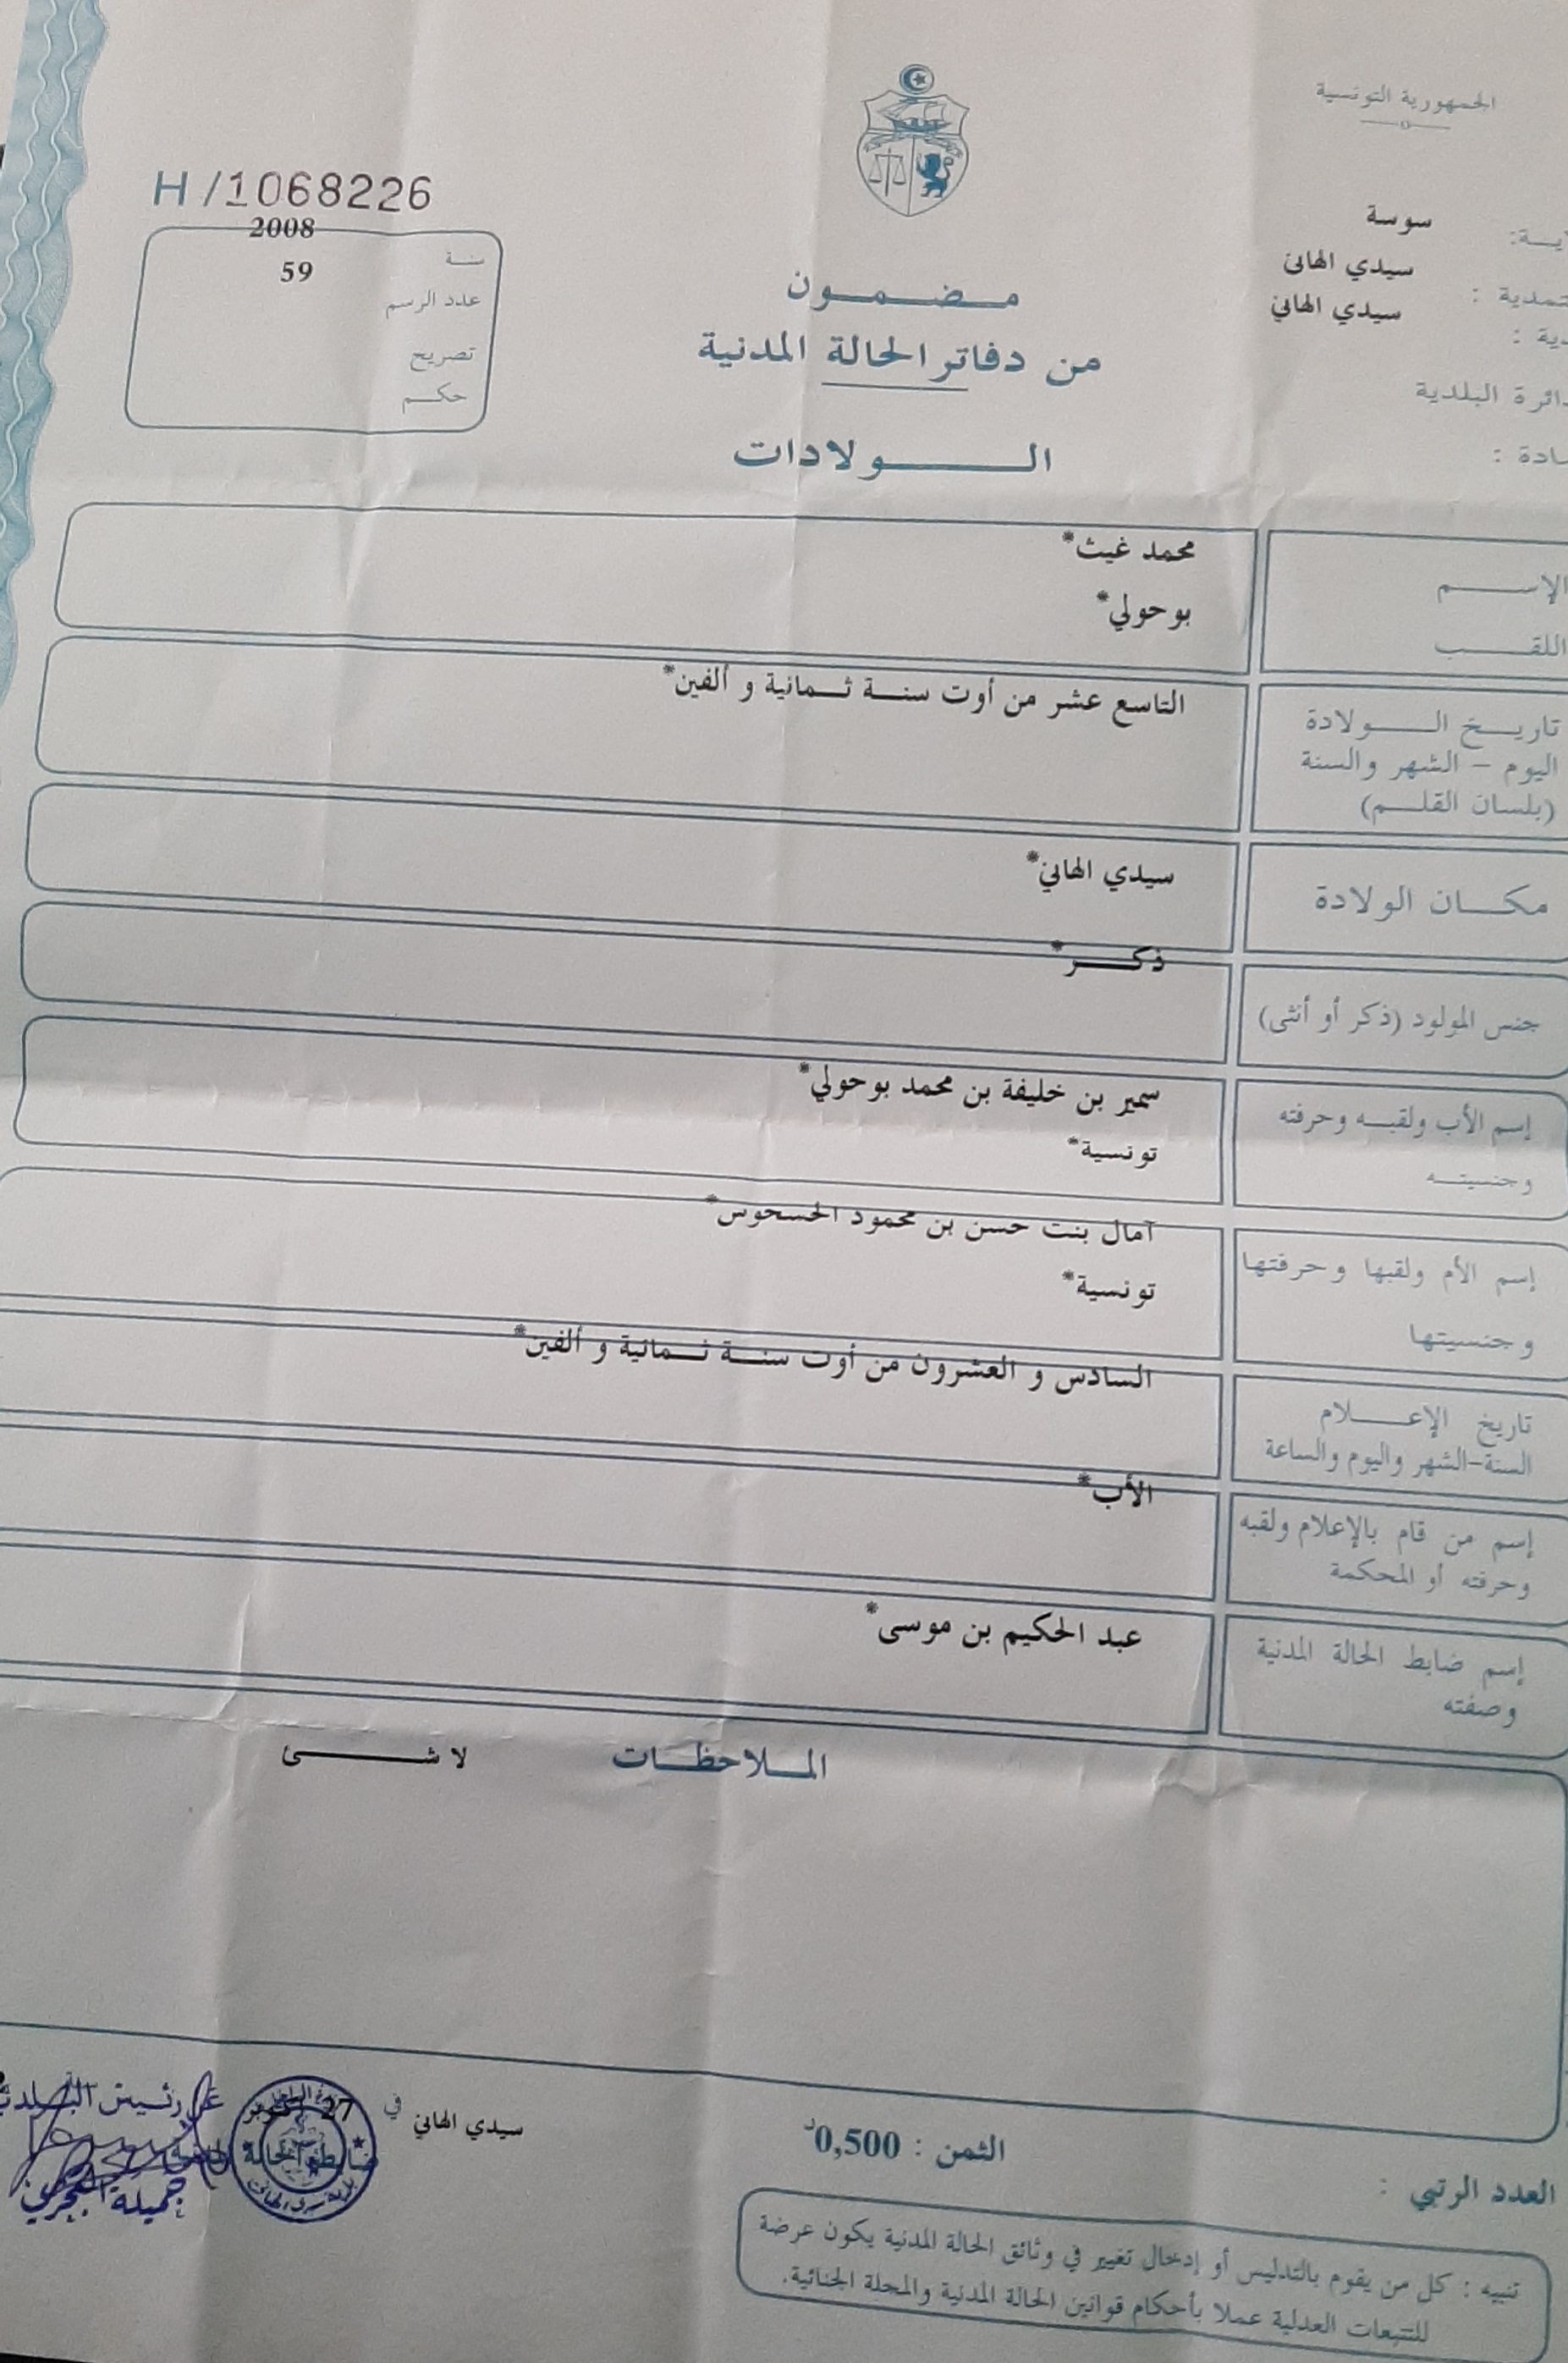 الجمهورية التونسية
H/1068226
سوسة
سيدي الهاني
سيدي الهاني
دائرة البلدية
2008
سنة
59
عدد الرسم
تصريح
حكم
مضمون
من دفاتر الحالة المدنية
الولادات
الإسم
محمد غيث*
اللقب
بوحولي*
تاريخ الولادة
اليوم - الشهر والسنة
(بلسان القلم)
التاسع عشر من أوت سنة ثمانية و ألفين*
مكان الولادة
سيدي الهاني*
جنس المولود (ذكر أو أنثى)
ذكر*
إسم الأب ولقبه وحرفته
وجنسيته
سمير بن خليفة بن محمد بوحولي*
تونسية*
إسم الأم ولقبها وحرفتها
وجنسيتها
آمال بنت حسن بن محمود الحسحوس*
تونسية*
تاريخ الإعلام
السنة-الشهر واليوم والساعة
السادس و العشرون من أوت سنة ثمانية و ألفين*
إسم من قام بالإعلام ولقبه
وحرفته أو المحكمة
الأب*
إسم ضابط الحالة المدنية
وصفته
عبد الحكيم بن موسى*
الملاحظات
لا شئ
سيدي الهاني في 27 أكتوبر
عن رئيس البلدية
ضابط الحالة المدنية
جميلة
الثمن : 0,500د
العدد الرتبي :
تنبيه : كل من يقوم بالتدليس أو إدخال تغيير في وثائق الحالة المدنية يكون عرضة
للتتبعات العدلية عملا بأحكام قوانين الحالة المدنية والمجلة الجنائية.